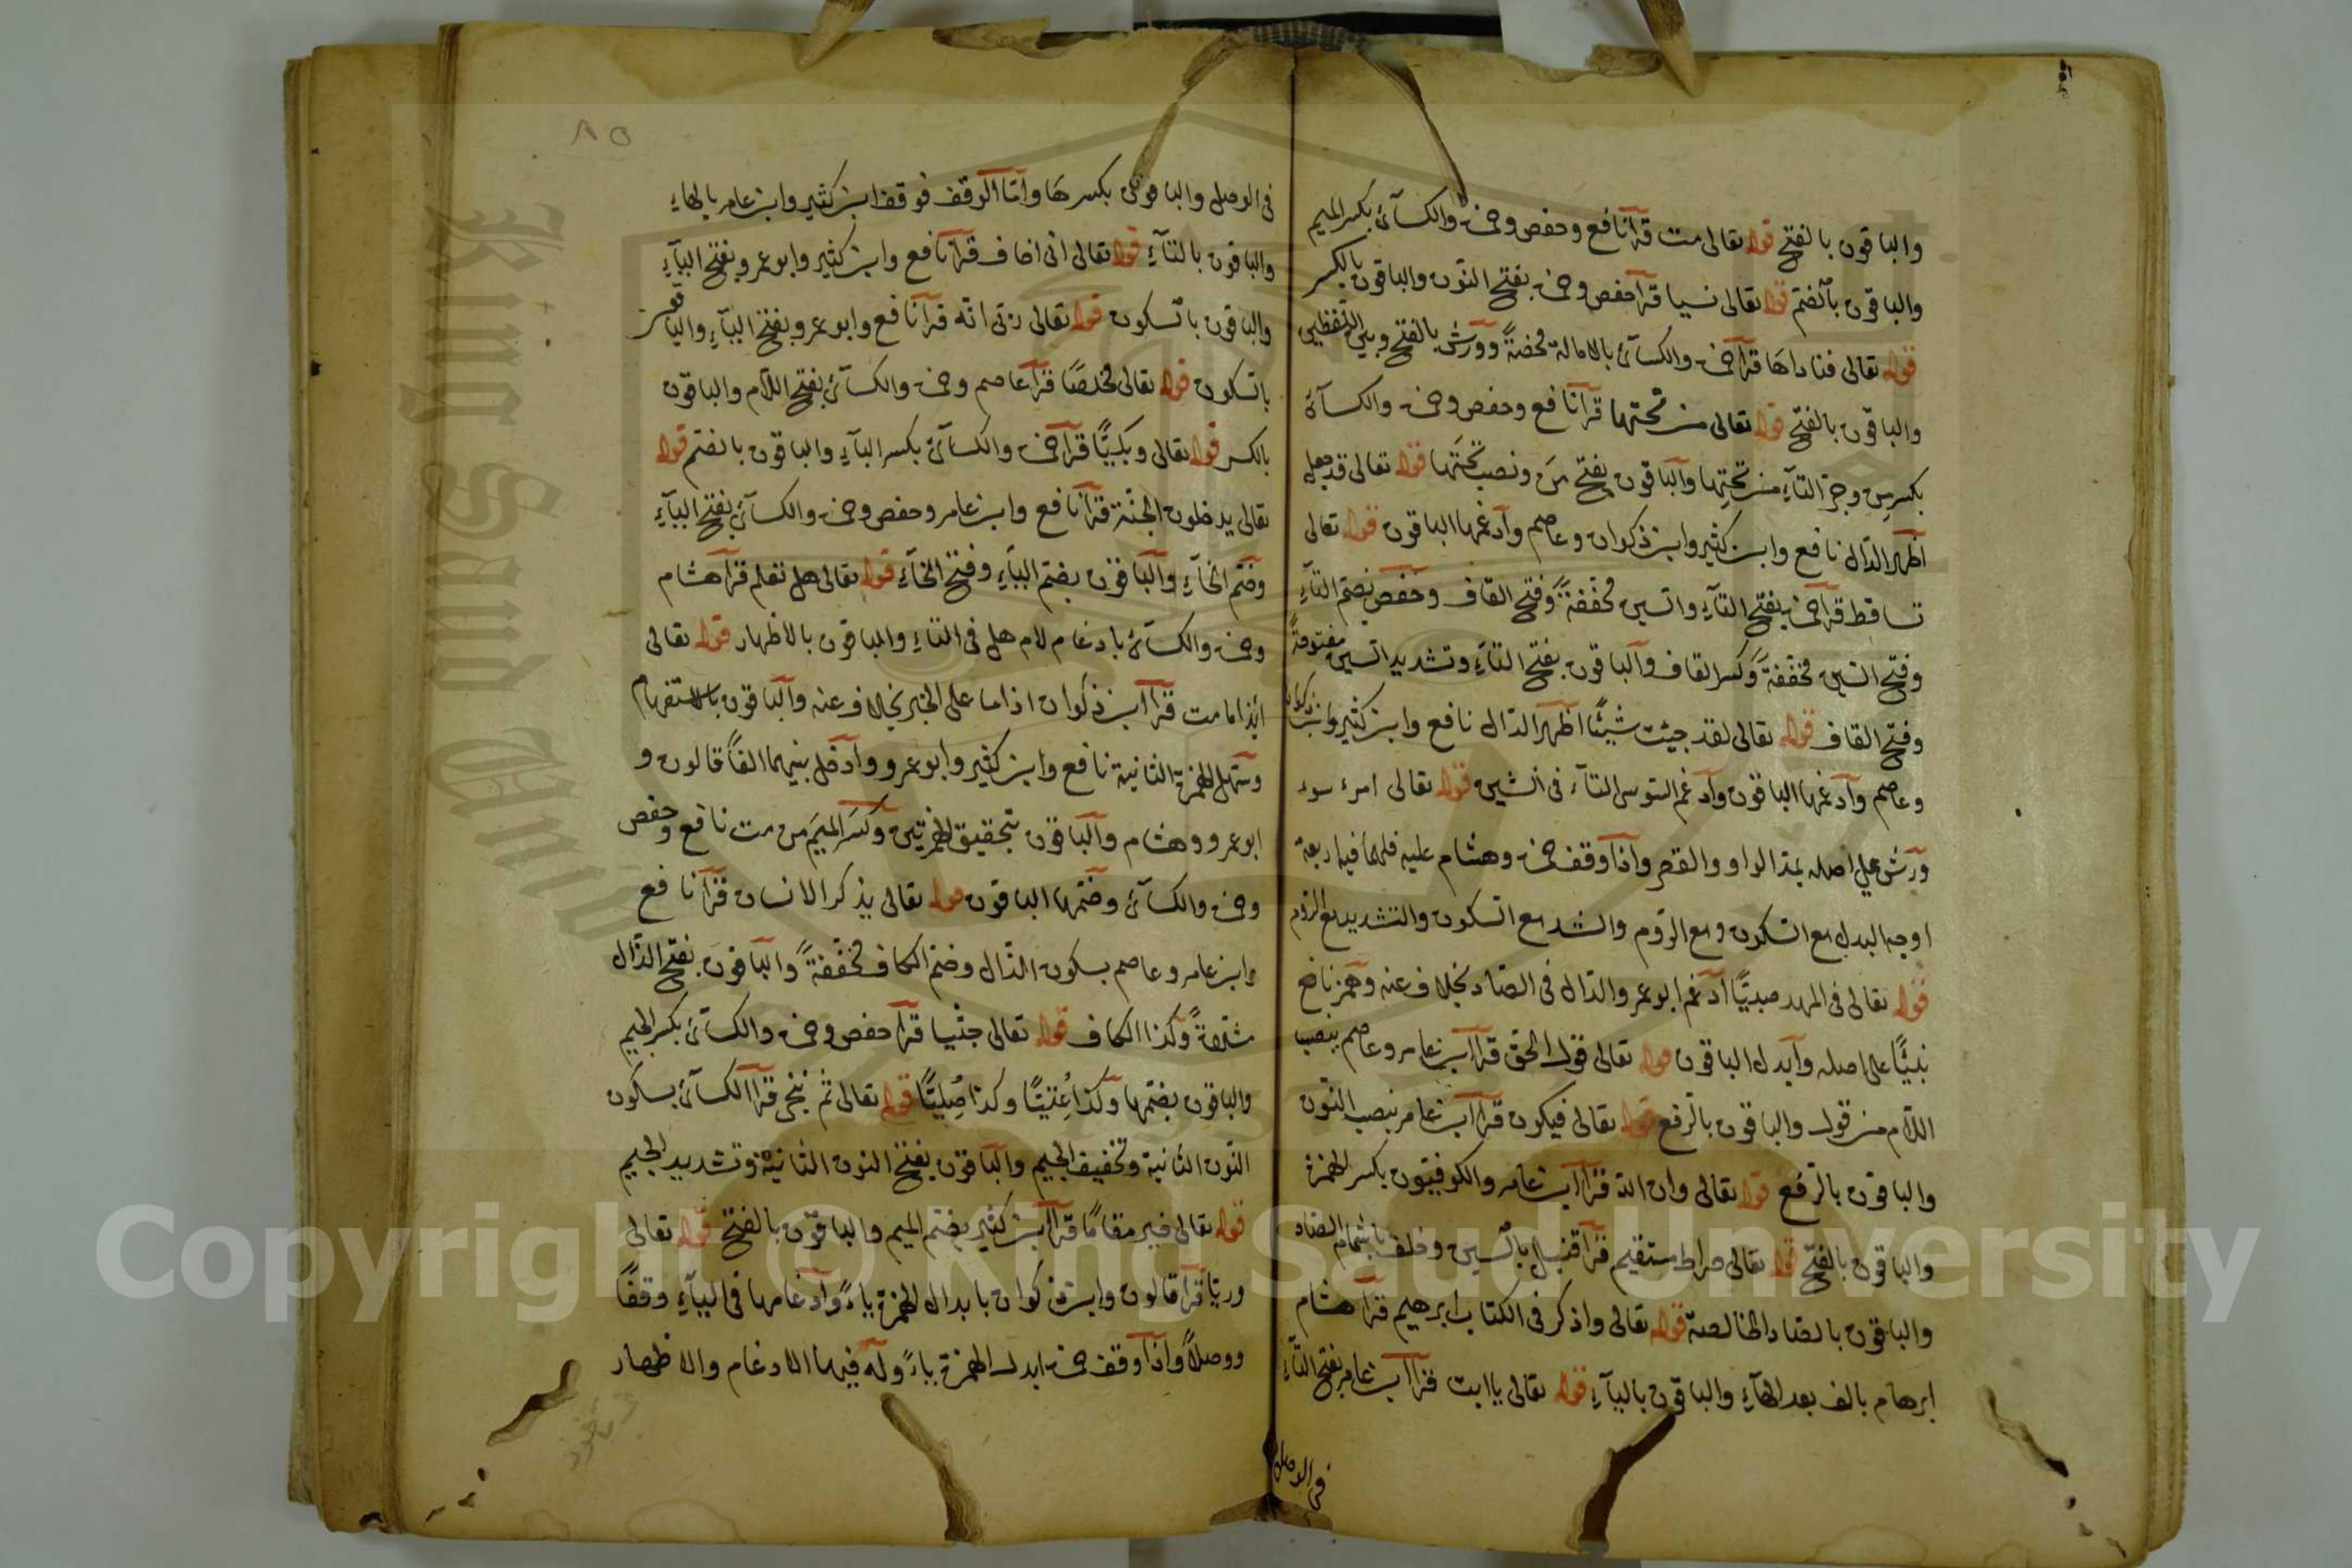 والباقون بالفتح قوله تعالى مت قرأ نافع وحفص وحمزة والكسآئ بكسر الميم
والباقون بالضم قوله تعالى نسيا قرأ حفص وحمزة بفتح النون والباقون بالكسر
قوله تعالى فناداها قرأ حمزة والكسآئ بالامالة محضةً وورش بالفتح وبين اللفظين
والباقون بالفتح قوله تعالى من تحتها قرأ نافع وحفص وحمزة والكسآئ
بكسر من وجر التآء من تحتِها والباقون بفتح مَن ونصب تحتَها قوله تعالى قد جعل
اظهر الدال نافع وابن كثير وابن ذكوان وعاصم وأدغمها الباقون قوله تعالى
تساقط قرأ حمزة بفتح التآء والسين مخففةً وفتح القاف وحفص بضم التآء
وفتح السين مخففةً وكسر القاف والباقون بفتح التآء وتشديد السين مفتوحةً
وفتح القاف قوله تعالى لقد جيئت شيئًا اظهر الدال نافع وابن كثير وابن ذكوان
وعاصم وأدغمها الباقون وأدغم السوسى التآء فى الشين قوله تعالى امرء سوء
ورش على اصله بمد الواو والقصر واذا وقف حمزة وهشام عليه فلهما فيه اربعة
اوجه البدل مع السكون ومع الروم والشد مع السكون والتشديد مع الروم
قوله تعالى فى المهد صبيًّا أدغم ابو عمرو الدال فى الصاد بخلاف عنه وهمز نافع
نبيئًا على اصله وأبدل الباقون قوله تعالى قول الحق قرأ ابن عامر وعاصم بنصب
اللام من قول والباقون بالرفع قوله تعالى فيكون قرأ ابن عامر بنصب النون
والباقون بالرفع قوله تعالى وان الله قرأ ابن عامر والكوفيون بكسر الهمزة
والباقون بالفتح قوله تعالى صراط مستقيم قرأ قنبل بالسين وخلف باشمام الصاد
والباقون بالصاد الخالصة قوله تعالى واذكر فى الكتاب ابرهيم قرأ هشام
ابرهام بالف بعد الهآء والباقون باليآء قوله تعالى ياابت قرأ ابن عامر بفتح التآء
فى الوصل
٨٥
فى الوصل والباقون بكسرها وأمّا الوقف فوقف ابن كثير وابن عامر بالهاء
والباقون بالتآء قوله تعالى انى اخاف قرأ نافع وابن كثير وابو عمرو بفتح اليآء
والباقون بالسكون قوله تعالى ربى انه قرأ نافع وابو عمرو بفتح اليآء والباقون
بالسكون قوله تعالى مخلصًا قرأ عاصم وحمزة والكسآئ بفتح اللام والباقون
بالكسر قوله تعالى وبكيًّا قرأ حمزة والكسآئ بكسر البآء والباقون بالضم قوله
تعالى يدخلون الجنّة قرأ نافع وابن عامر وحفص وحمزة والكسآئ بفتح اليآء
وضم الخآء والباقون بضم اليآء وفتح الخآء قوله تعالى هل تعلم قرأ هشام
وحمزة والكسآئ بادغام لام هل فى التاء والباقون بالاظهار قوله تعالى
ائذا ما مت قرأ ابن ذكوان اذا ما على الخبر بخلاف عنه والباقون بالاستفهام
وسهل الهمزة الثانية نافع وابن كثير وابو عمرو وأدخل بينهما الفًا قالون و
ابو عمرو وهشام والباقون بتحقيق الهمزتين وكسر الميم من مت نافع وحفص
وحمزة والكسآئ وضمها الباقون قوله تعالى يذكر الانسان قرأ نافع
وابن عامر وعاصم بسكون الذال وضم الكاف مخففةً والباقون بفتح الذال
مثقلةً وكذا الكاف قوله تعالى جثيا قرأ حفص وحمزة والكسآئ بكسر الجيم
والباقون بضمها وكذا عُتيًّا وكذا صُليًّا قوله تعالى ثم ننجى قرأ الكسآئ بسكون
النون الثانية وتخفيف الجيم والباقون بفتح النون الثانية وتشديد الجيم
قوله تعالى خير مقامًا قرأ ابن كثير بضم الميم والباقون بالفتح قوله تعالى
وريًا قرأ قالون وابن ذكوان بابدال الهمزة ياءً وأدغامها فى اليآء وقفًا
ووصلاً واذا وقف حمزة ابدل الهمزة ياءً وله فيها الادغام والاظهار
King Saud University
Copyright © King Saud University